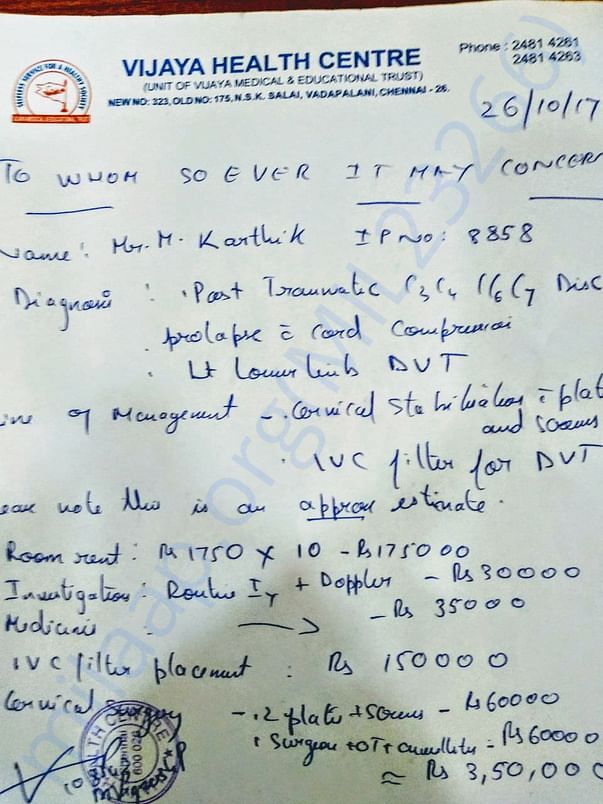 VIJAYA HEALTH CENTRE
(UNIT OF VIJAYA MEDICAL & EDUCATIONAL TRUST)
NEW NO: 323, OLD NO: 175, N.S.K. SALAI, VADAPALANI, CHENNAI - 26.
Phone : 2481 4261
2481 4263
26/10/17
TO WHOM SO EVER IT MAY CONCERN
Name: Mr. M. Karthik IP No: 8858
Diagnosis : Post Traumatic C3C4 C6C7 Disc
prolapse c̄ Cord Compression
Lt Lower limb DVT
Line of Management - Cervical Stabilization c̄ plat
and screws
IVC filter for DVT
note this is an approx estimate.
Room rent : Rs 1750 X 10 - Rs 175000
Investigation : Routine + Doppler - Rs 30000
Medicines - Rs 35000
IVC filter placement : Rs 150000
Cervical Surgery - 2 plate + screws - Rs 60000
Surgeon + OT - Rs 60000
≈ Rs 3,50,000
milaap.org(MIL23266)